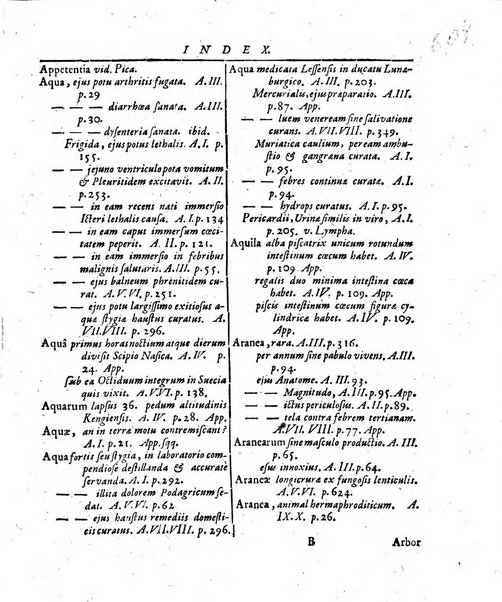 INDEX.
Appetentia vid. Pica.
Aqua, ejus potu arthritis fugata. A. III.
p. 29
— — — diarrhœa sanata. A. III.
p. 30.
— — — dysenteria sanata. ibid.
Frigida, ejus potus lethalis. A. I. p.
155.
— — jejuno ventriculo pota vomitum
& Pleuritidem excitavit. A. II.
p. 253.
— — in eam recens nati immersio
Icteri lethalis causa. A. I. p. 134
— — in eam caput immersum cœci-
tatem peperit. A. II. p. 121.
— — in eam immersio in febribus
malignis salutaris. A. III. p. 55.
— — ejus balneum phrenitidem cu-
rat. A. V. VI. p. 251.
— — ejus potu largissimo exitiosus a-
quæ stygiæ haustus curatus. A.
VII. VIII. p. 296.
Aquâ primus horas noctium atque dierum
divisit Scipio Nasica. A. IV. p.
24. App.
sub ea Octiduum integrum in Suecia
quis vixit. A. V. VI. p. 138.
Aquarum lapsus 36. pedum altitudinis
Kengiensis. A. IV. p. 28. App.
Aquæ, an in terræ motu contremiscant?
A. I. p. 21. App. sqq.
Aqua fortis seu stygia, in laboratorio com-
pendiose destillanda & accurate
servanda. A. I. p. 292.
— — illita dolorem Podagricum se-
dat. A. V. VI. p. 62
— — ejus haustus remediis domesti-
cis curatus. A. VII. VIII. p. 296.
Aqua medicata Lessensis in ducatu Lunæ-
burgico. A. III. p. 203.
Mercurialis, ejus præparatio. A. III.
p. 87. App.
— — luem veneream sine salivatione
curans. A. VII. VIII. p. 349.
Muriatica caulium, per eam ambu-
stio & gangræna curata. A. I.
p. 95.
— — febres continuæ curatæ. A. I.
p. 94.
— — hydrops curatus. A. I. p. 95.
Pericardii, Urinæ similis in viro, A. I.
p. 205. v. Lympha.
Aquila alba piscatrix unicum rotundum
intestinum cœcum habet. A. IV.
p. 109. App.
regalis duo minima intestina cœca
habet. A. IV. p. 109. App.
piscis intestinum cœcum figuræ cy-
lindricæ habet. A. IV. p. 109.
App.
Aranea, rara. A. III. p. 316.
per annum sine pabulo vivens. A. III.
p. 94.
ejus Anatome. A. III. 93.
— — Magnitudo, A. III. p. 95. App.
— — ictus periculosus. A. II. p. 89.
— — tela contra febrem tertianam.
A. VII. VIII. p. 77. App.
Aranearum sine masculo productio. A. III.
p. 65.
esus innoxius. A. III. p. 64.
Araneæ longicruræ ex fungosis lenticulis.
A. V. VI. p. 624.
Aranea, animal hermaphroditicum. A.
IX. X. p. 26.
B
Arbor